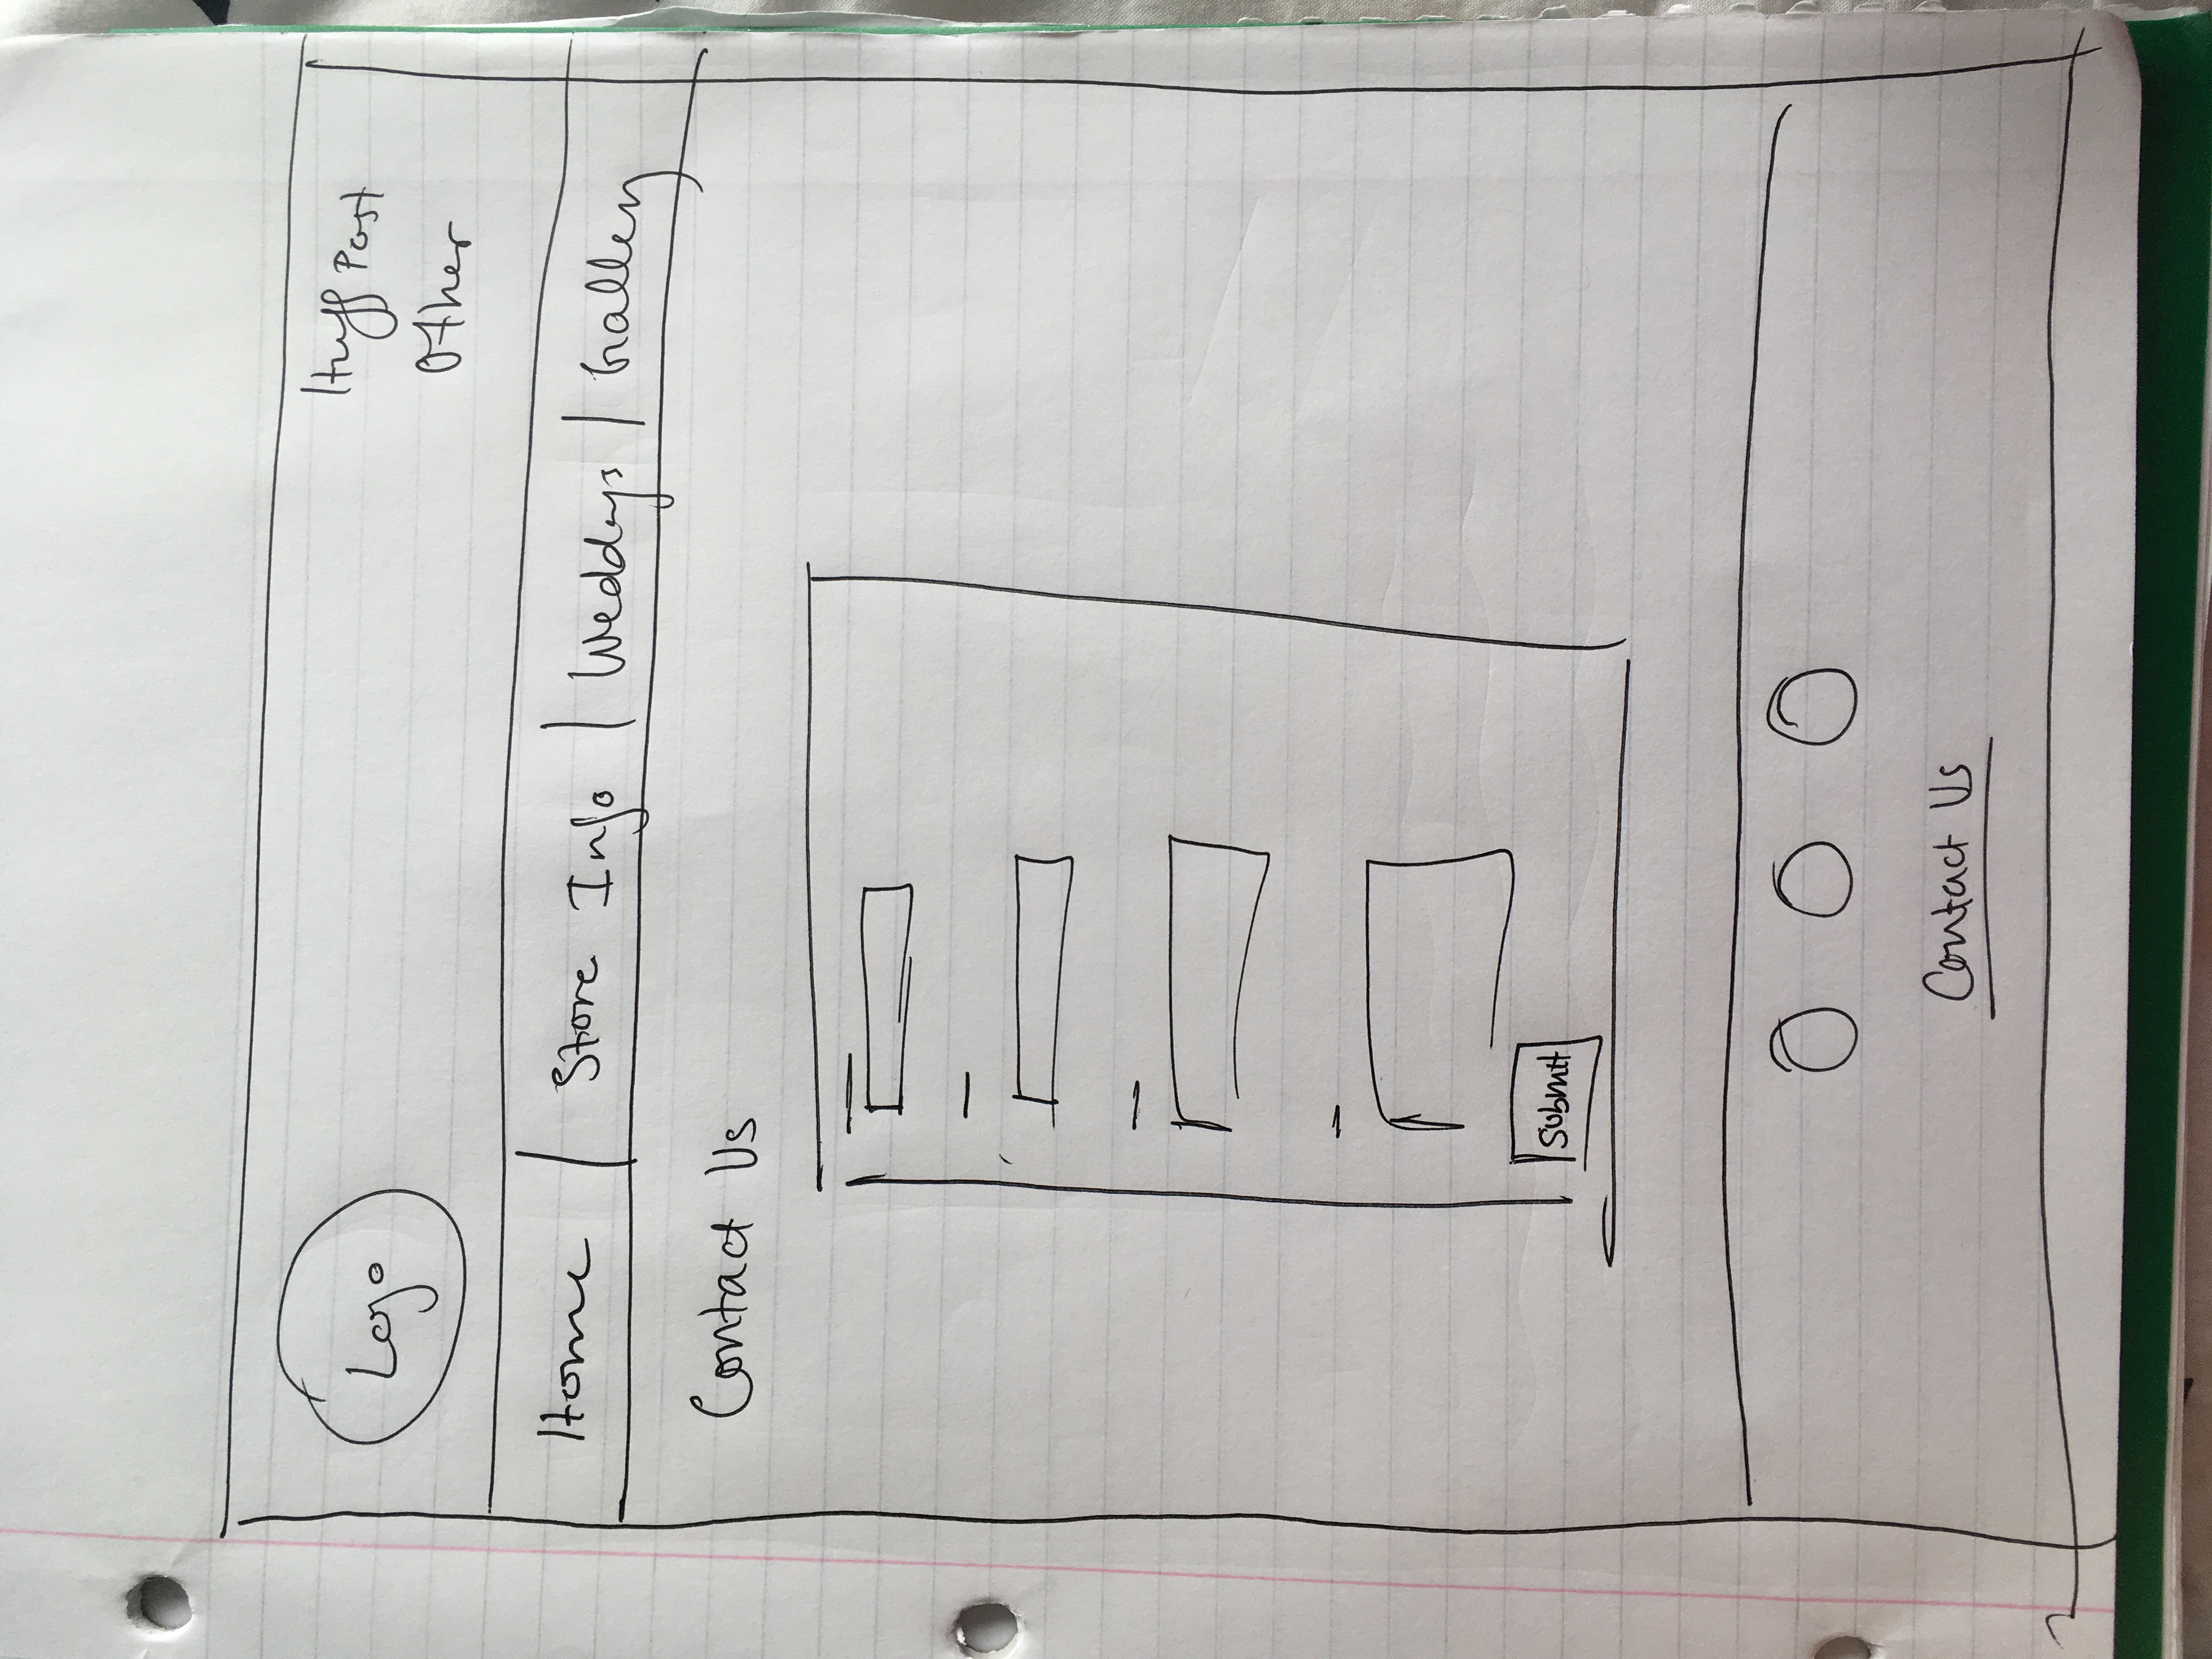 Logo
Huff Post
Other
Home | Store Info | Weddings | Gallery
Contact Us
Submit
Contact Us